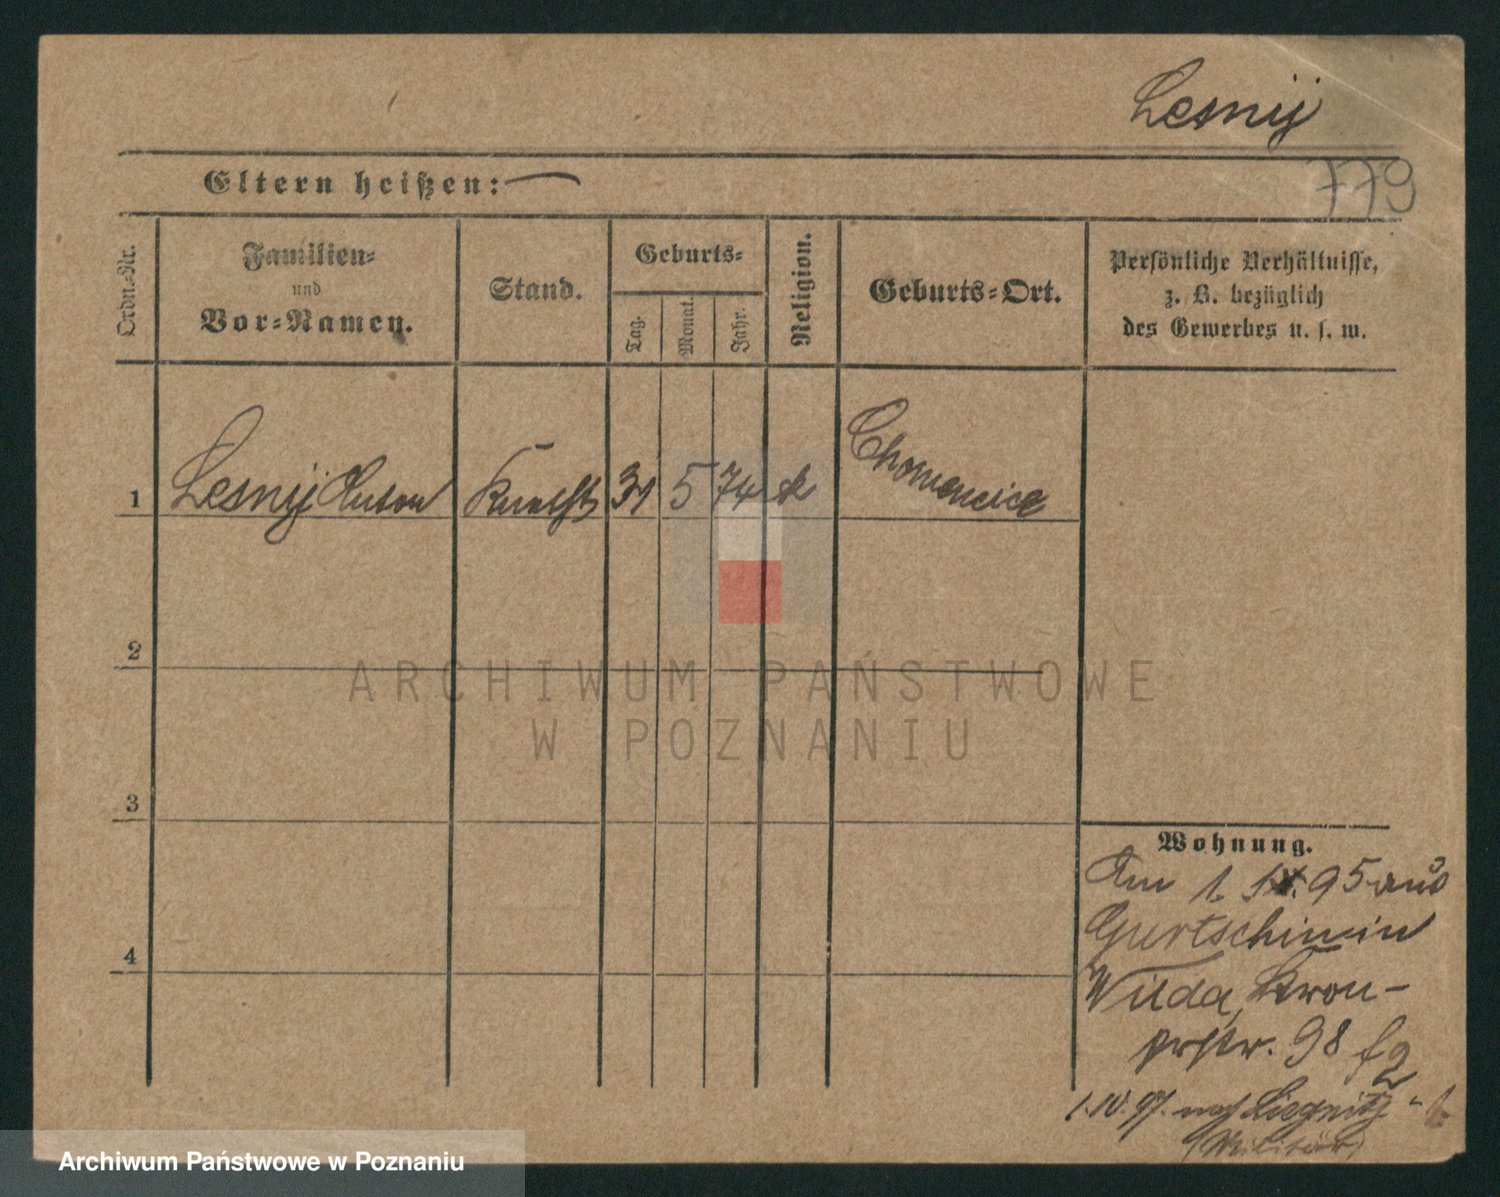 Lesnij
779
Eltern heißen: —
Ordn.-Nr.
Familien-
und
Vor-Namen.
Stand.
Geburts-
Tag.
Monat.
Jahr.
Religion.
Geburts-Ort.
Persönliche Verhältnisse,
z. B. bezüglich
des Gewerbes u. s. w.
1 Lesnij Anton Knecht 31 5 74 k Chomencice
2
3
4
Wohnung.
Am 1. 95 aus
Gurtschin in
Wilda, Kron-
prstr. 98
1.IV.97. nach Liegnitz
(Militär)
ARCHIWUM PAŃSTWOWE
W POZNANIU
Archiwum Państwowe w Poznaniu